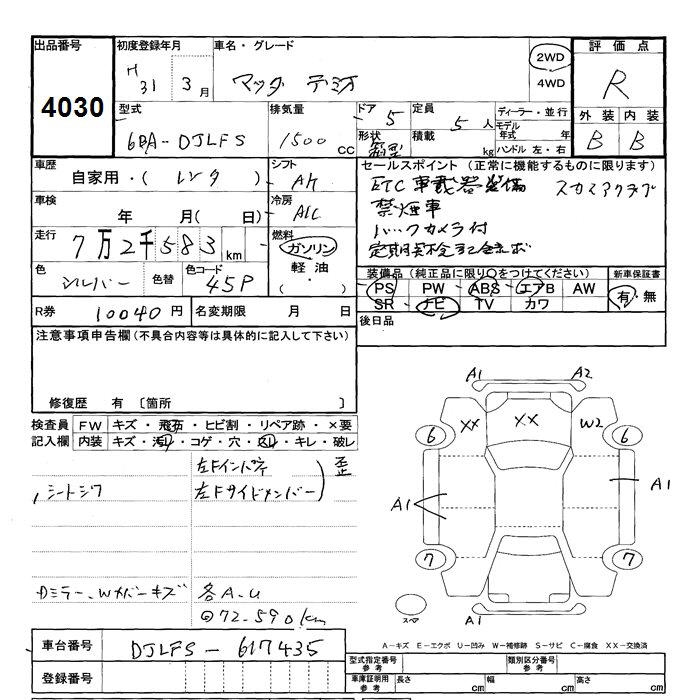 出品番号
4030
初度登録年月
H31 3月
車名・グレード
マツダ デミオ
2WD
4WD
評価点
R
外装 内装
B B
型式
6BA-DJLFS
排気量
1500 CC
ドア 5
形状 箱型
定員 5人
積載 kg
ディーラー・並行
モデル年式 年
ハンドル 左・右
車歴
自家用・( レンタ )
シフト
AT
車検
年 月( 日)
冷房
A/C
走行
7万2千583km
燃料
ガソリン
軽油
( ・ )
色
シルバー
色替
色コード
45P
セールスポイント (正常に機能するものに限ります)
ETC車載器装備 スカイアクティブ
禁煙車
バックカメラ付
定期点検記録簿
装備品 (純正品に限り○をつけてください)
PS PW ABS エアB AW
SR ナビ TV カワ
新車保証書
有・無
R券 10040円
名変期限 月 日
後日品
注意事項申告欄(不具合内容等は具体的に記入して下さい)
修復歴 有 〔箇所 〕
検査員記入欄
FW キズ・飛石・ヒビ割・リペア跡・×要
内装 キズ・汚レ・コゲ・穴・スレ・キレ・破レ
左Fインパネ
左Fサイドメンバー
歪
シートシワ
Dミラー、Wカバーキズ
各A.U
◎72-590km
A1 A2
XX XX W2
6 6
A1 A1
7 7
スペア
A1
A-キズ E-エクボ U-凹み W-補修跡 S-サビ C-腐食 XX-交換済
車台番号
DJLFS-617435
登録番号
型式指定番号 参考
類別区分番号 参考
車庫証明用 参考
長さ cm
幅 cm
高さ cm